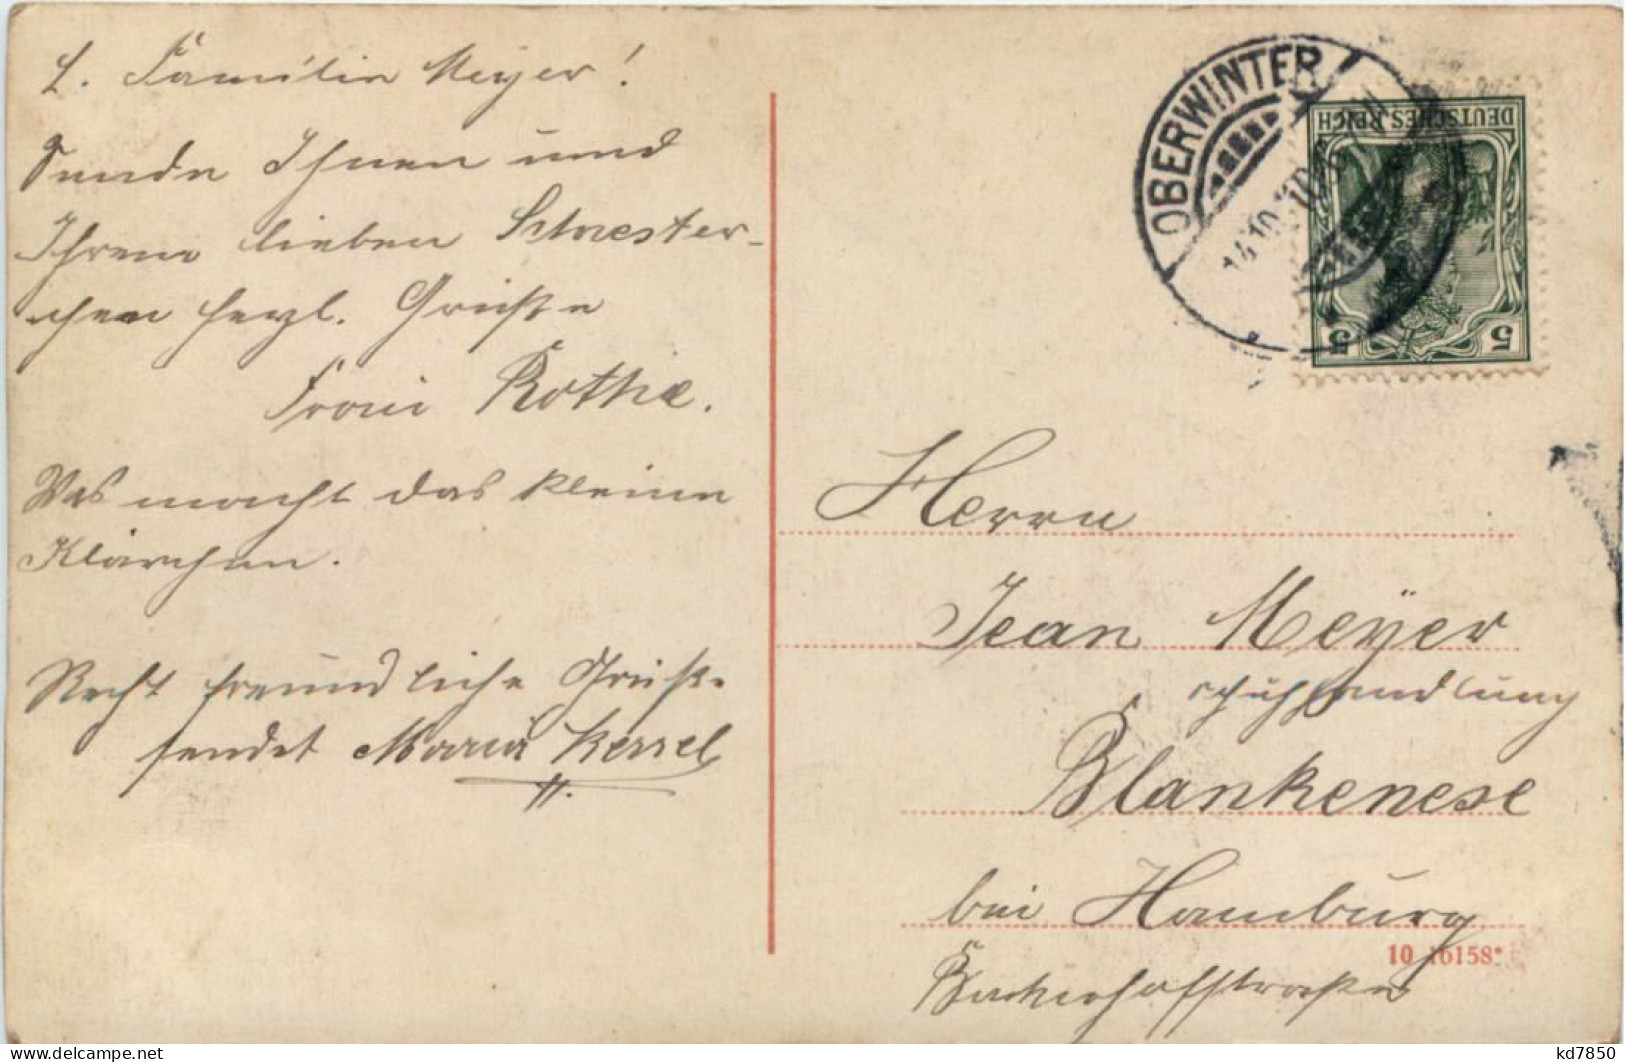 L. Familie Meyer!
Sende Ihnen und
Ihrem lieben Schwester-
chen herzl. Grüße
Frau Rothe.
Was macht das kleine
Klärchen.
Recht freundliche Grüße
sendet Maria Kessel
OBERWINTER
14.10.10
DEUTSCHES REICH
5 5
Herrn
Jean Meyer
Schuhhandlung
Blankenese
bei Hamburg
10 16158*
kd7850